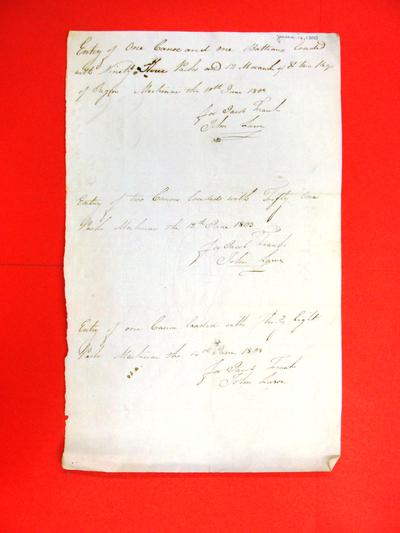 Entry of One Canoe and one Batteau Loaded
with Ninety Three Packs and 12 Mococks &
of Sugar Mackinac the 10th June 1803
for Jacob Frank
John Lawe
Entry of two Canoes loaded with Fifty One
Packs Mackinac the 12th June 1803
for Jacob Franks
John Lawe
Entry of one Canoe loaded with Thirty Eight
Packs Mackinac the 14th June 1803
for Jacob Frank
John Lawe